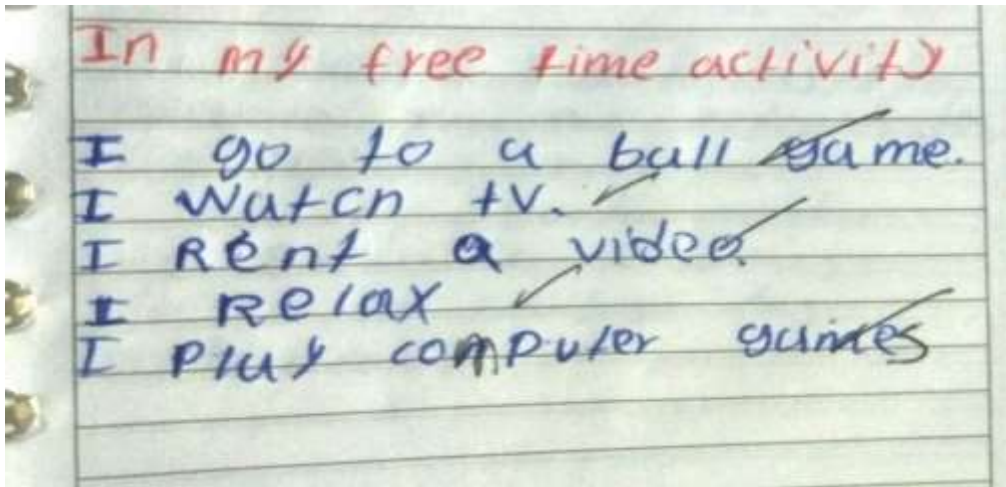 In my free time activity
I go to a ball game.
I Watch tv.
I Rent a video.
I Relax
I Play computer games